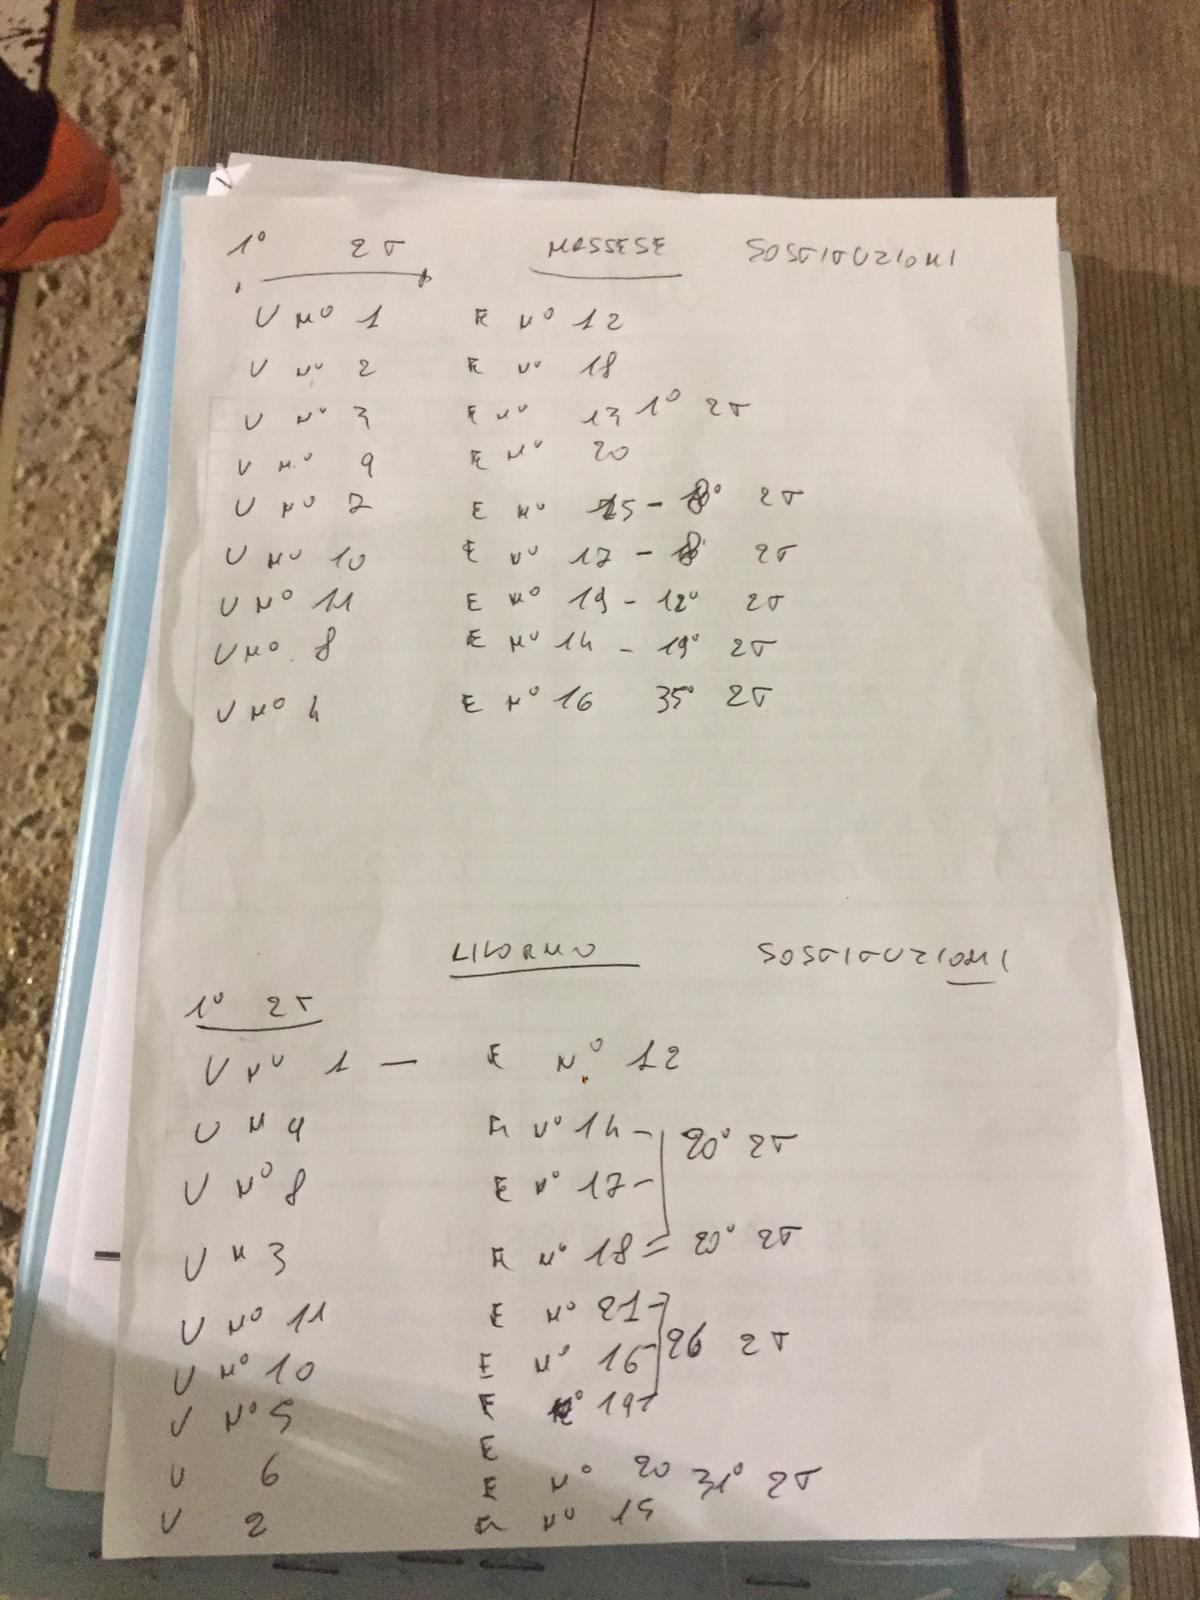 1° 2T MASSESE SOSTITUZIONI
U N° 1 E N° 12
U N° 2 E N° 18
U N° 3 E N° 13 1° 2T
U N° 9 E N° 20
U N° 7 E N° 15 - 8° 2T
U N° 10 E N° 17 - 8° 2T
U N° 11 E N° 19 - 12° 2T
U N° 8 E N° 14 - 19° 2T
U N° 4 E N° 16 35° 2T
LIVORNO SOSTITUZIONI
1° 2T
U N° 1 — E N° 12
U N 9 E N° 14 - 20° 2T
U N° 8 E N° 17 -
U N 3 E N° 18 = 20° 2T
U N° 11 E N° 21 -
U N° 10 E N° 16 26 2T
U N° 5 E N° 19
E
U 6 E N° 20 31° 2T
U 2 E N° 15